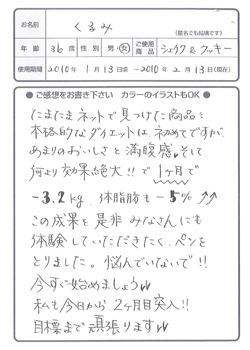 お名前 くるみ (匿名でも結構です)
年齢 36歳 性別 男・女 ご使用商品 シェイク&クッキー
使用期間 2010年1月13日頃~2010年2月13日(現在)
●ご感想をお書き下さい カラーのイラストもOK●
たまたまネットで見つけた商品で
本格的なダイエットは、初めてですが、
あまりのおいしさと満腹感、そして
何より効果絶大!!で1ヶ月で
-3.2kg 体脂肪も-5% ↑↑
この成果を是非みなさんにも
体験していただきたく、ペンを
とりました。悩んでいないで!!
今すぐ始めましょう
私も今日から2ヶ月目突入!!
目標まで頑張ります